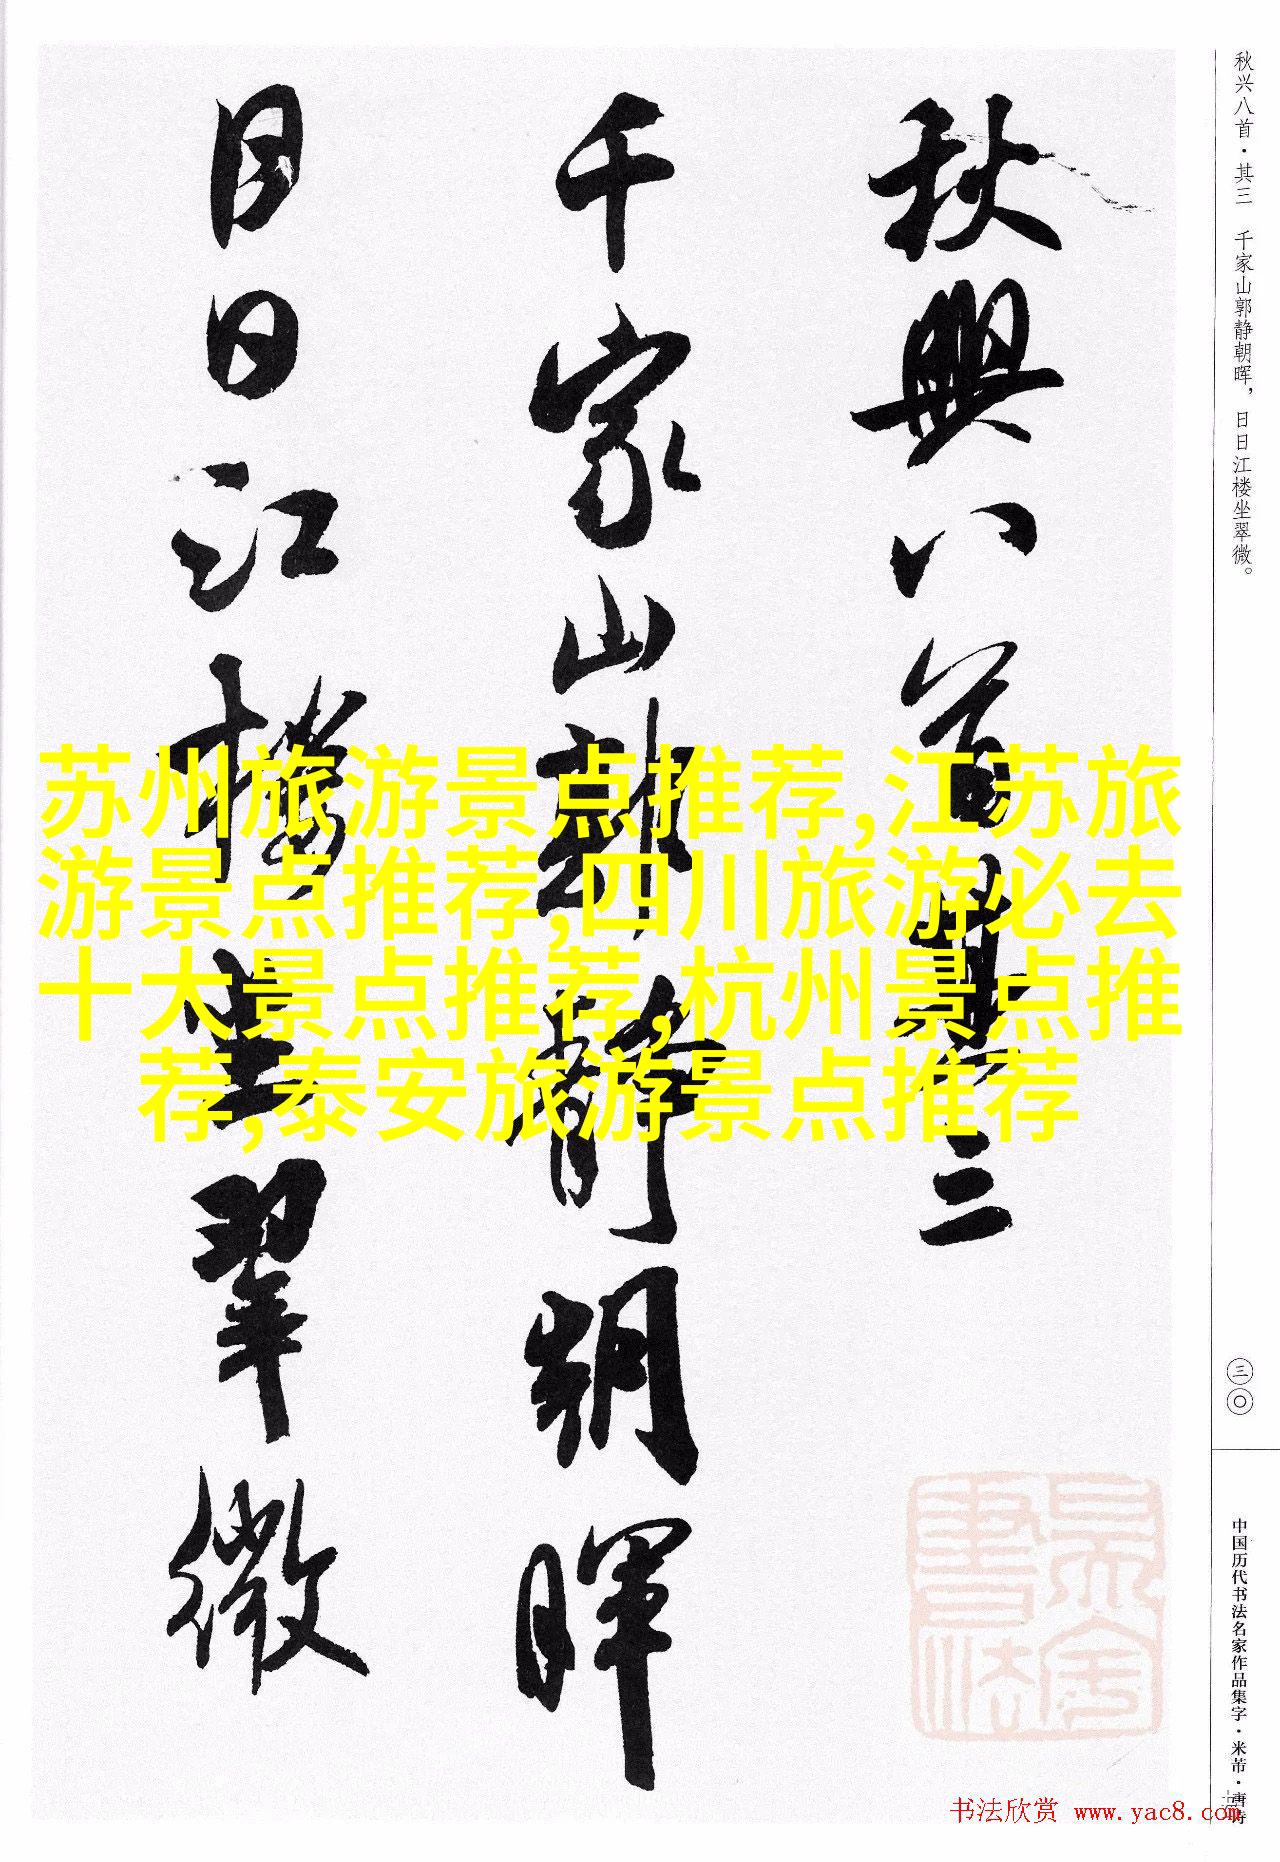 秋兴八首·其三 千家山郭静朝晖，日日江楼坐翠微。
秋興八首其三
千家山郭静朝暉
日日江樓坐翠微
苏州旅游景点推荐,江苏旅
游景点推荐,四川旅游必去
十大景点推荐,杭州景点推
荐,泰安旅游景点推荐
三〇
中国历代书法名家作品集字·米芾·唐诗
书法欣赏 www.yac8.com